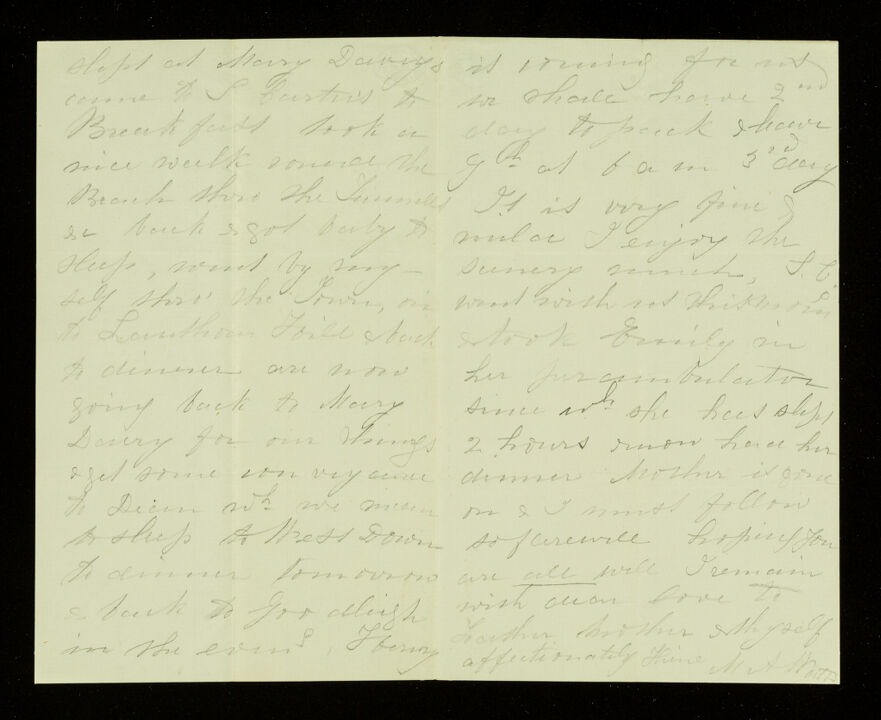 slept at Mary Davys
came to S Curtis's to
Breakfast took a
nice walk round the
Beach thro the Tunnels
& back & got baby to
sleep, went by my-
self thro' the Town, on
to Lanthorn Hill & back
to dinner are now
going back to Mary
Davy for our things
& get some conveyance
to Dean wh. we mean
to sleep to West Down
to dinner tomorrow
& back to Goodleigh
in the eveng. Henry
is coming for us
we shall have 2nd
day to pack & leave
at 6 am 3rd day
It is very fine &
mild I enjoy the
scenery much, S. C.
went with us this morn
& took Emily in
her perambulator
since wh. she has slept
2 hours & now had her
dinner Mother is gone
on & I must follow
so farewell hoping you
are all well I remain
with dear love to
Father, Mother & thyself
affectionately thine M A